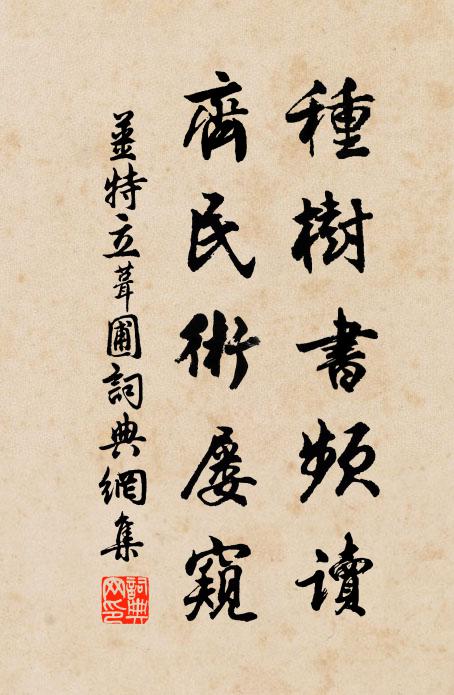 種樹書頻讀
齊民術屡窺
姜特立葺圃詞典網集
詞典
网印